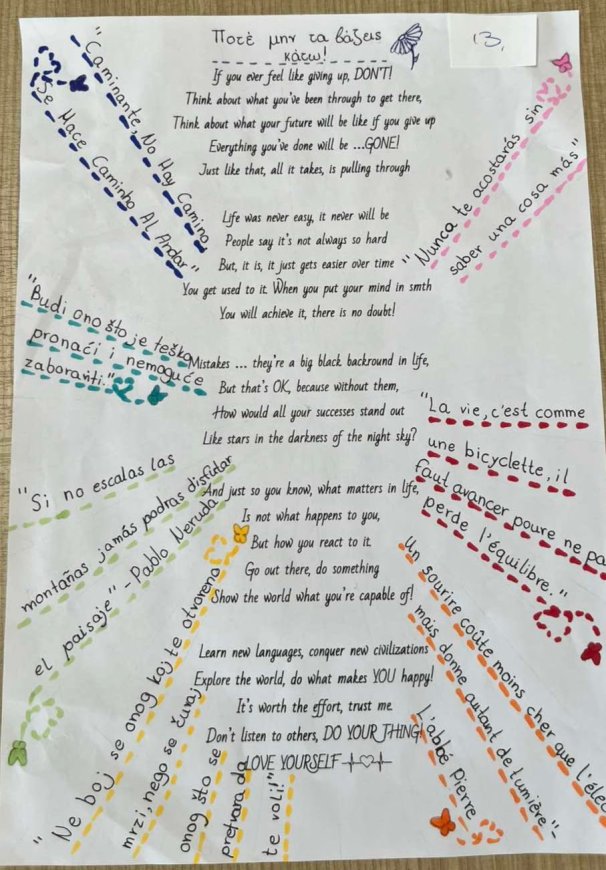 Ποτέ μην τα βάζεις
κάτω!
13.
If you ever feel like giving up, DON'T!
Think about what you've been through to get there,
Think about what your future will be like if you give up
Everything you've done will be ...GONE!
Just like that, all it takes, is pulling through
Life was never easy, it never will be
People say it's not always so hard
But, it is, it just gets easier over time
You get used to it. When you put your mind in smth
You will achieve it, there is no doubt!
Mistakes ... they're a big black backround in life,
But that's OK, because without them,
How would all your successes stand out
Like stars in the darkness of the night sky?
And just so you know, what matters in life,
Is not what happens to you,
But how you react to it.
Go out there, do something
Show the world what you're capable of!
Learn new languages, conquer new civilizations
Explore the world, do what makes YOU happy!
It's worth the effort, trust me.
Don't listen to others, DO YOUR THING!
LOVE YOURSELF
"Caminante, No Hay Camino,
Se Hace Camino Al Andar"
"Nunca te acostarás sin
saber una cosa más"
"Budi ono što je teško
pronaći i nemoguće
zaboraviti."
"La vie, c'est comme
une bicyclette, il
faut avancer poure ne pa
perde l'équilibre."
"Si no escalas las
montañas jamás podras disfrutar
el paisaje" - Pablo Neruda
"Ne boj se onog koj te otvoreno
mrzi, nego se čuvaj
onog što se
pretvara da
te voli!"
Un sourire coûte moins cher que l'élec
mais donne autant de lumière"-
L'abbé Pierre